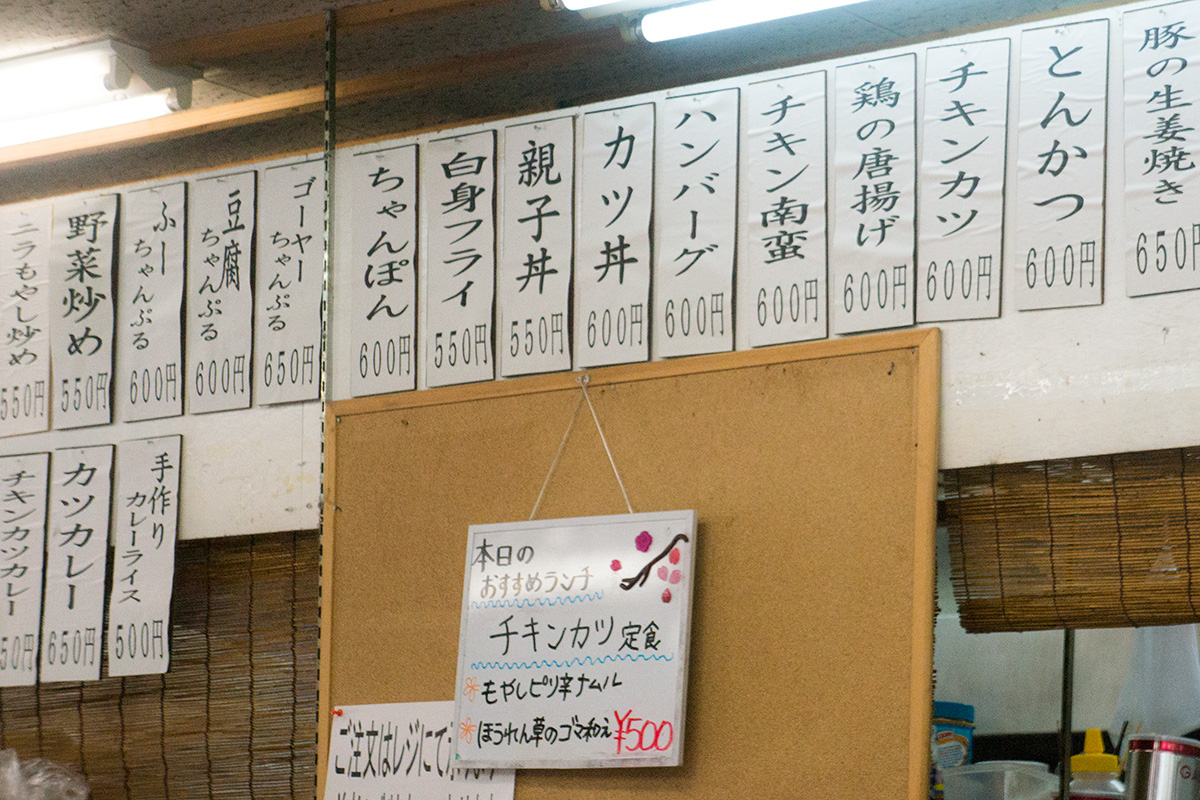 豚の生姜焼き
650円
とんかつ
600円
チキンカツ
600円
鶏の唐揚げ
600円
チキン南蛮
600円
ハンバーグ
600円
カツ丼
600円
親子丼
550円
白身フライ
550円
ちゃんぽん
600円
ゴーヤー
ちゃんぷる
650円
豆腐
ちゃんぷる
600円
ふー
ちゃんぷる
600円
野菜炒め
550円
ニラもやし炒め
550円
手作り
カレーライス
500円
カツカレー
650円
チキンカツカレー
50円
本日の
おすすめランチ
チキンカツ定食
もやしピリ辛ナムル
ほうれん草のゴマ和え ¥500
ご注文はレジにて